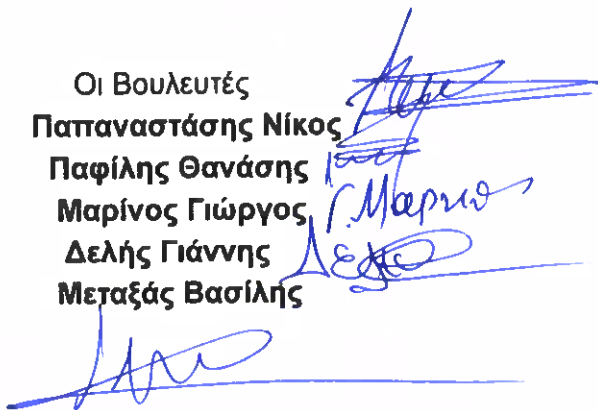 Οι Βουλευτές
Παπαναστάσης Νίκος
Παφίλης Θανάσης
Μαρίνος Γιώργος
Δελής Γιάννης
Μεταξάς Βασίλης